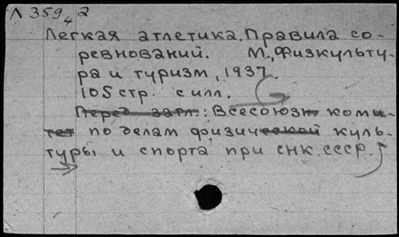 Л 359 2
4
Легкая атлетика. Правила со-
ревнований. М., Физкульту-
ра и туризм, 1937.
105 стр. с илл.
Перед загл.: Всесоюзн коми-
тет по делам физической куль-
туры и спорта при СНК СССР.